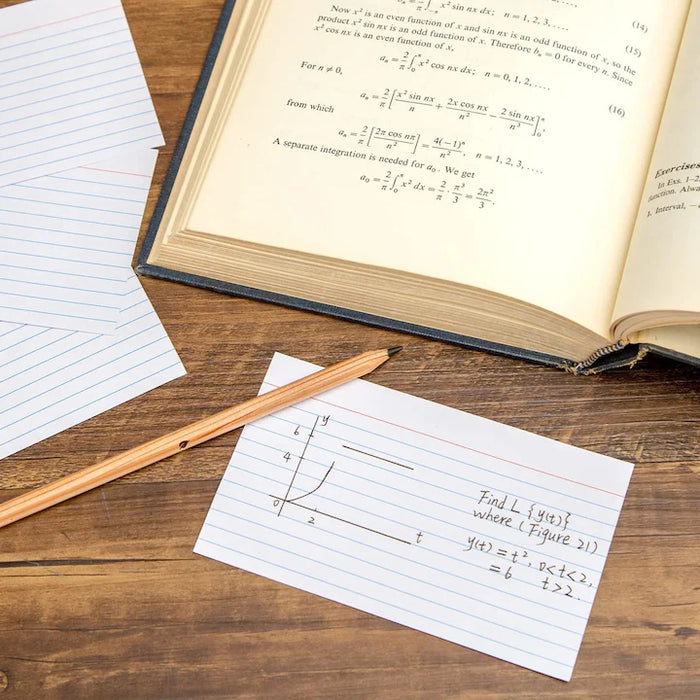 a_n = 2/π ∫_{-π}^{π} x² sin nx dx; n = 1, 2, 3, .... (14)
Now x² is an even function of x and sin nx is an odd function of x, so the
product x² sin nx is an odd function of x. Therefore b_n = 0 for every n. Since (15)
x² cos nx is an even function of x,
a_n = 2/π ∫_0^π x² cos nx dx; n = 0, 1, 2, ....
For n ≠ 0,
a_n = 2/π [x² sin nx / n + 2x cos nx / n² − 2 sin nx / n³]_0^π, (16)
from which
a_n = 2/π [2π cos nπ / n²] = 4(−1)ⁿ / n², n = 1, 2, 3, ....
A separate integration is needed for a_0. We get
a_0 = 2/π ∫_0^π x² dx = 2/π · π³/3 = 2π²/3.
Exercises
In Exs. 1–2
function. Alwa
1. Interval, −
y
6
4
0
2
t
Find L {y(t)}
where (Figure 21)
y(t) = t², 0<t<2,
= 6 t>2.